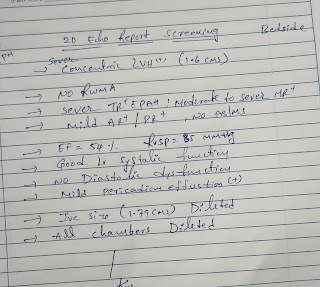 2D Echo Report Screening Bedside
pm
Sever
→ Concentric LVH (1.6 cms)
→ NO RWMA
→ Sever TR+ EPAH : Moderate to sever MR+
→ Mild AR+ / PR+ , NO AS/MS
→ EF = 54 % RVSP = 85 mmHg
→ Good LV systolic function
→ NO Diastolic dysfunction
→ Mild pericadian effustion (+)
→ Ivc size (1.79 cms) Dileted
→ All chambers Dileted